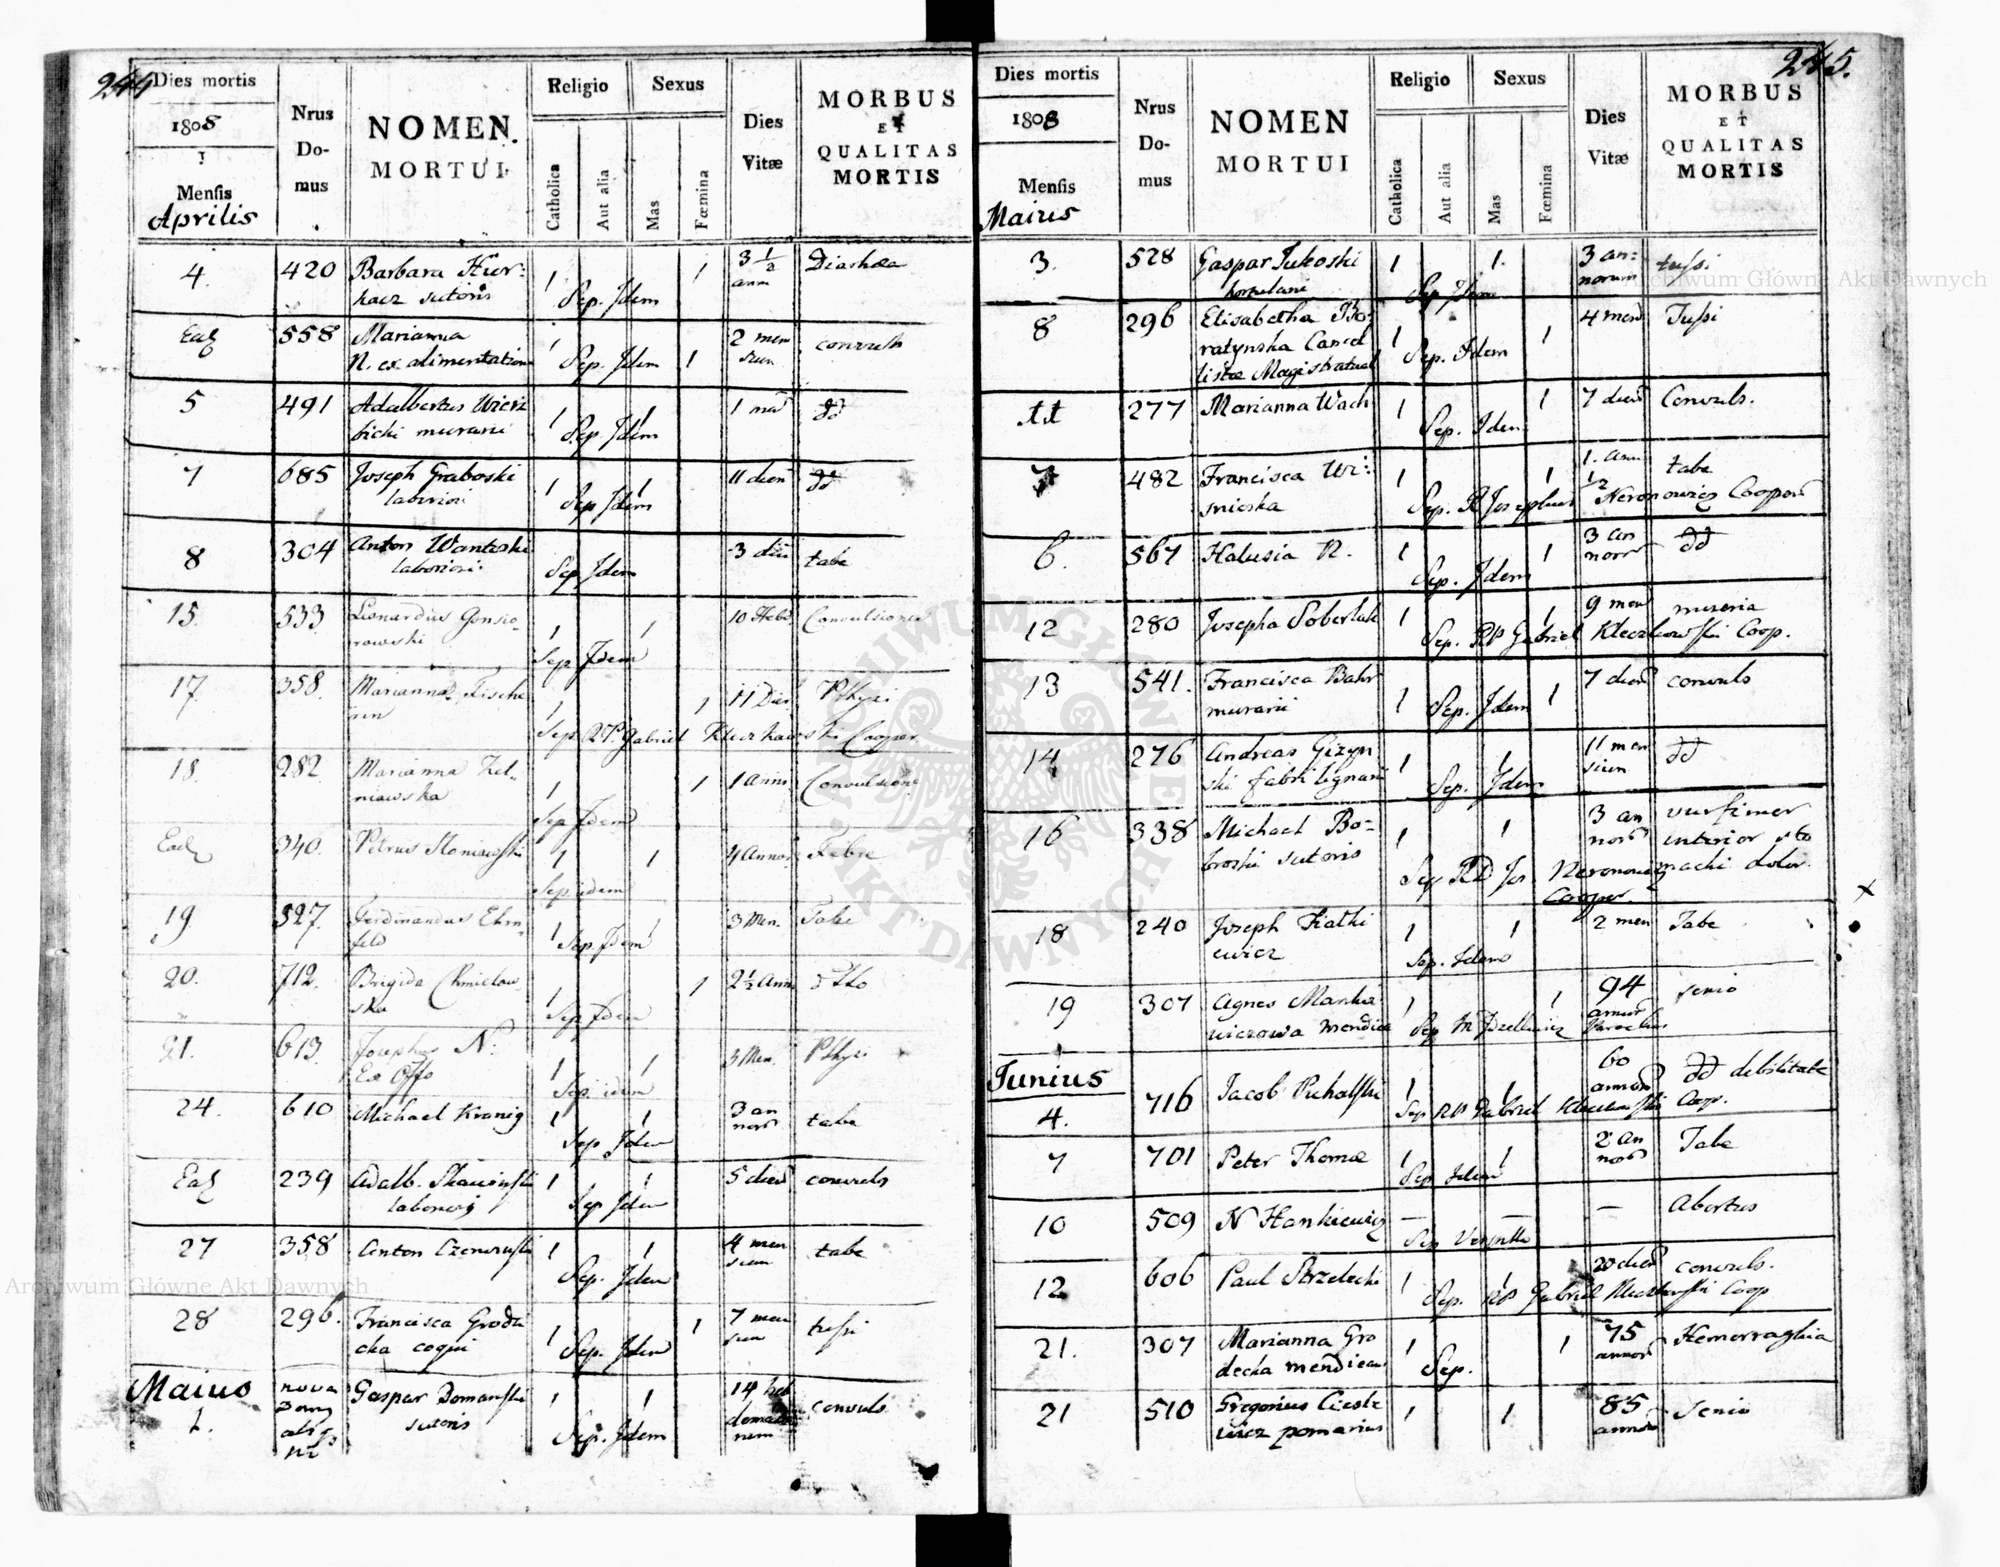 244
Dies mortis
1808
Mensis
Aprilis
Nrus
Do-
mus
NOMEN
MORTUI
Religio
Catholica
Aut alia
Sexus
Mas
Fœmina
Dies
Vitæ
MORBUS
ET
QUALITAS
MORTIS
4. 420 Barbara 1 1 3 1/2 Diarhœa
sutoris Sep. Idem
Ead 558 Marianna 1 2 men convuls
N. ex alimentation Sep. Idem 1
5 491 Adalbertus Wierz 1 1 1 men dd
bicki murarii Sep Idem
7 685 Joseph Graboski 1 1 11 dieru dd
laboriosi Sep Idem
8 304 Anton Wanteski 3 tabe
laboriosi Sep Idem
15. 533 Leonardus Gonsio- 1 1 10 Hebd. Convulsiones
rowski Sep Idem
17. 358. Marianna Fische 1 1 11 Dies Pthysi
rin Sep R.P. Gabriel Kleczkowski Cooper
18. 282. Marianna Zel- 1 1 1 Anni Convulsione
niowska Sep Idem
Ead 340. Petrus 1 1 4 Annor Febre
Sep. idem
19. 527. Ferdinandus Ehrn- 1 1 3 Men. Tabe
feld Sep. Idem
20. 712. Brigida Chmielow 1 1 2 1/2 Anni dtto
ska Sep Idem
21. 613. Josephus N. 1 1 3 Men. Pthysi
Ex Offo Sep. idem
24. 610 Michael Kranig 1 1 3 an tabe
nor Sep Idem
Ead 239 Adalb. 1 1 5 dier convuls
laboriosi Sep Idem
27 358 Anton 1 1 4 men tabe
sium Sep. Idem
28 296. Francisca Grodzi 1 1 7 men tussi
cka coqui Sep. Idem
Maius nova Gaspar Domanski 1 1 14 heb convuls
1. sutoris Sep. Idem
245.
Dies mortis
1808
Mensis
Maius
Nrus
Do-
mus
NOMEN
MORTUI
Religio
Catholica
Aut alia
Sexus
Mas
Fœmina
Dies
Vitæ
MORBUS
ET
QUALITAS
MORTIS
3. 528 Gaspar Jukoski 1 1. 3 an- tussi
norum Sep Idem
8 296 Elisabetha Bo- 1 1 4 men Tussi
ratynska Cancel Sep. Idem
listæ Magistratual
tt 277 Marianna Wach 1 1 7 dier Convuls.
Sep. Idem
482 Francisca Wi- 1 1 1. ann tabe
snieska Sep. R Josephus Neronowicz Cooper 1/2
6. 567 Halusia N. 1 1 3 an dd
nor Sep. Idem
12 280 Josepha Soberlak 1 1 9 men miseria
Sep. RP Gabriel Kleczkowski Coop.
13 541. Francisca Bahr 1 1 7 dier convuls
murarii Sep. Idem
14 276 Andreas Gizyn 1 1 11 men dd
ski fabri lignarii Sep. Idem sium
16 338 Michael Bo- 1 1 3 an
broski sutoris nor interior sto
Sep RD Jos Neronowicz machi dolor.
Cooper.
18 240 Joseph Kathi 1 1 2 men Tabe
ewicz Sep. Idem
19 307 Agnes Marke 1 1 94 senio
wiczowa mendica Sep annor Parochus
Junius
4. 716 Jacob Puchalski 1 1 60 dd debilitate
annor Sep RP Gabriel Kleczkowski Coop.
7 701 Peter Thomæ 1 1 2 an Tabe
nor Sep Idem
10 509 N Hankiewicz — — — Abortus
Sep
12 606 Paul Strzelecki 1 1 20 dier convuls.
Sep. RP Gabriel Kleczkowski Coop
21. 307 Marianna Gro 1 1 75 Hemorraghia
decka mendica Sep. annor
21 510 Gregorius Ciesle 1 1 85 Senio
wicz pomarius annor
Archiwum Główne Akt Dawnych
Archiwum Główne Akt Dawnych
ARCHIWUM GŁÓWNE
AKT DAWNYCH